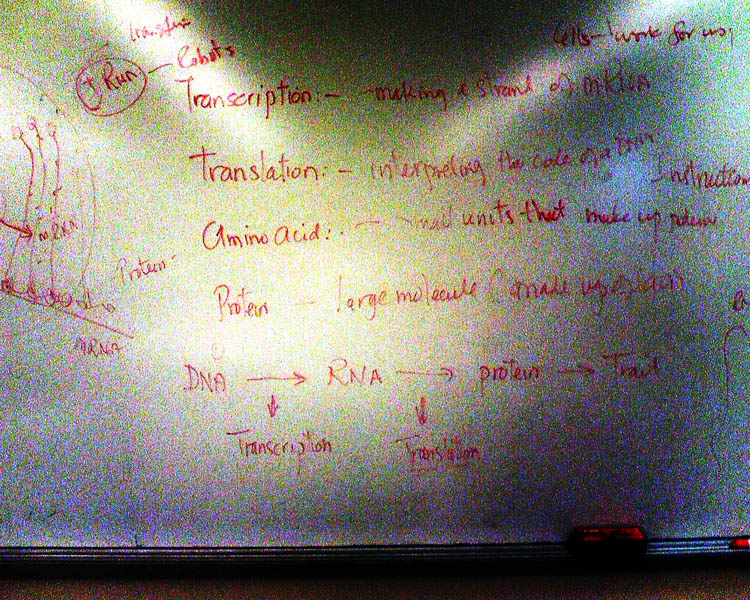 Transfer
Run — Robots
Cells - work for us,
Transcription:- making a strand of mRNA
Translation:- interpreting the code of
Instruction
Amino acid:. - small units that make up
mRNA
Protein
Protein - large molecule (made up
mRNA
DNA → RNA → protein → Trait
Transcription
Translation